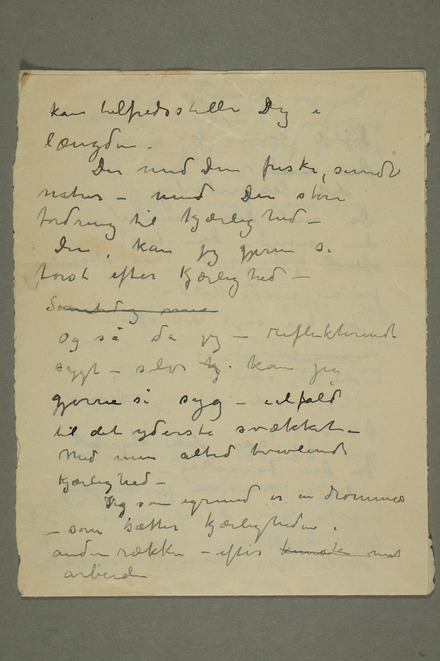 kan tilfredsstille Dig i
længden –
Du med Din friske, sunde
natur – med Din store
fordring til kjærlighed –
Din, kan jeg gjerne si
tørst efter kjærlighed –
og så da jeg – reflekterende
sygt – selv kan jeg
gjerne si syg – ialfald
til det yderste svækket –
Med min altid tvivlende
kjærlighed –
Jeg som igrund er en drømmer
– som sætter kjærligheden i
anden række – efter kunsten mit
arbeide